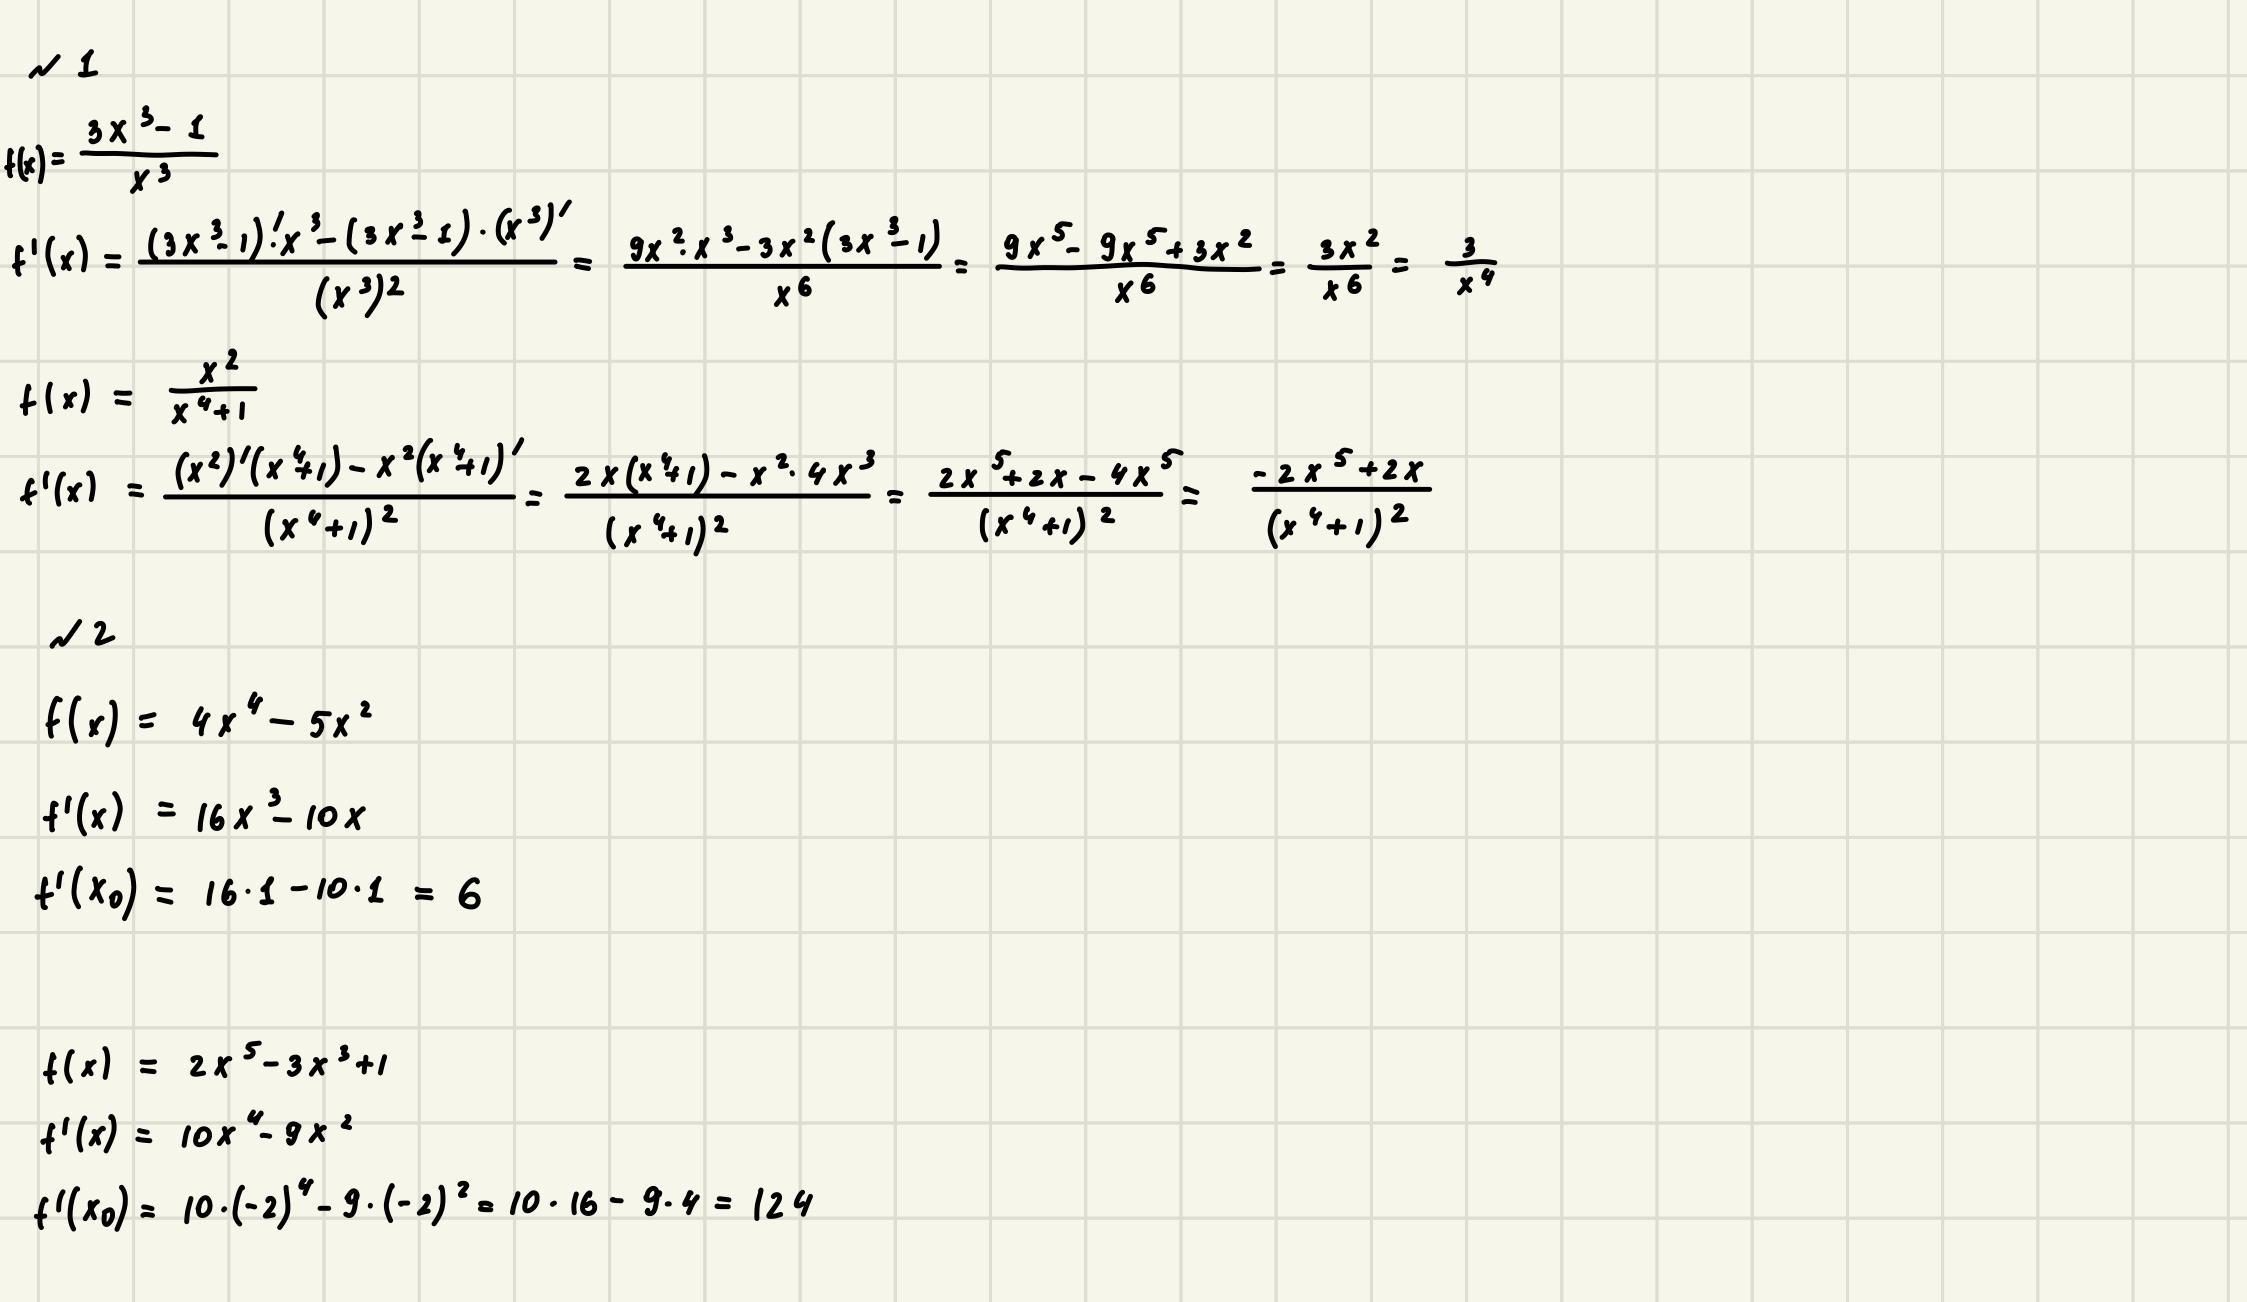 № 1
f(x) = (3x³ - 1)/x³
f'(x) = ((3x³ - 1)'·x³ - (3x³ - 1)·(x³)')/(x³)² = (9x²·x³ - 3x²(3x³ - 1))/x⁶ = (9x⁵ - 9x⁵ + 3x²)/x⁶ = 3x²/x⁶ = 3/x⁴
f(x) = x²/(x⁴+1)
f'(x) = ((x²)'(x⁴+1) - x²(x⁴+1)')/(x⁴+1)² = (2x(x⁴+1) - x²·4x³)/(x⁴+1)² = (2x⁵+2x - 4x⁵)/(x⁴+1)² = (-2x⁵+2x)/(x⁴+1)²
№ 2
f(x) = 4x⁴ - 5x²
f'(x) = 16x³ - 10x
f'(x₀) = 16·1 - 10·1 = 6
f(x) = 2x⁵ - 3x³ + 1
f'(x) = 10x⁴ - 9x²
f'(x₀) = 10·(-2)⁴ - 9·(-2)² = 10·16 - 9·4 = 124